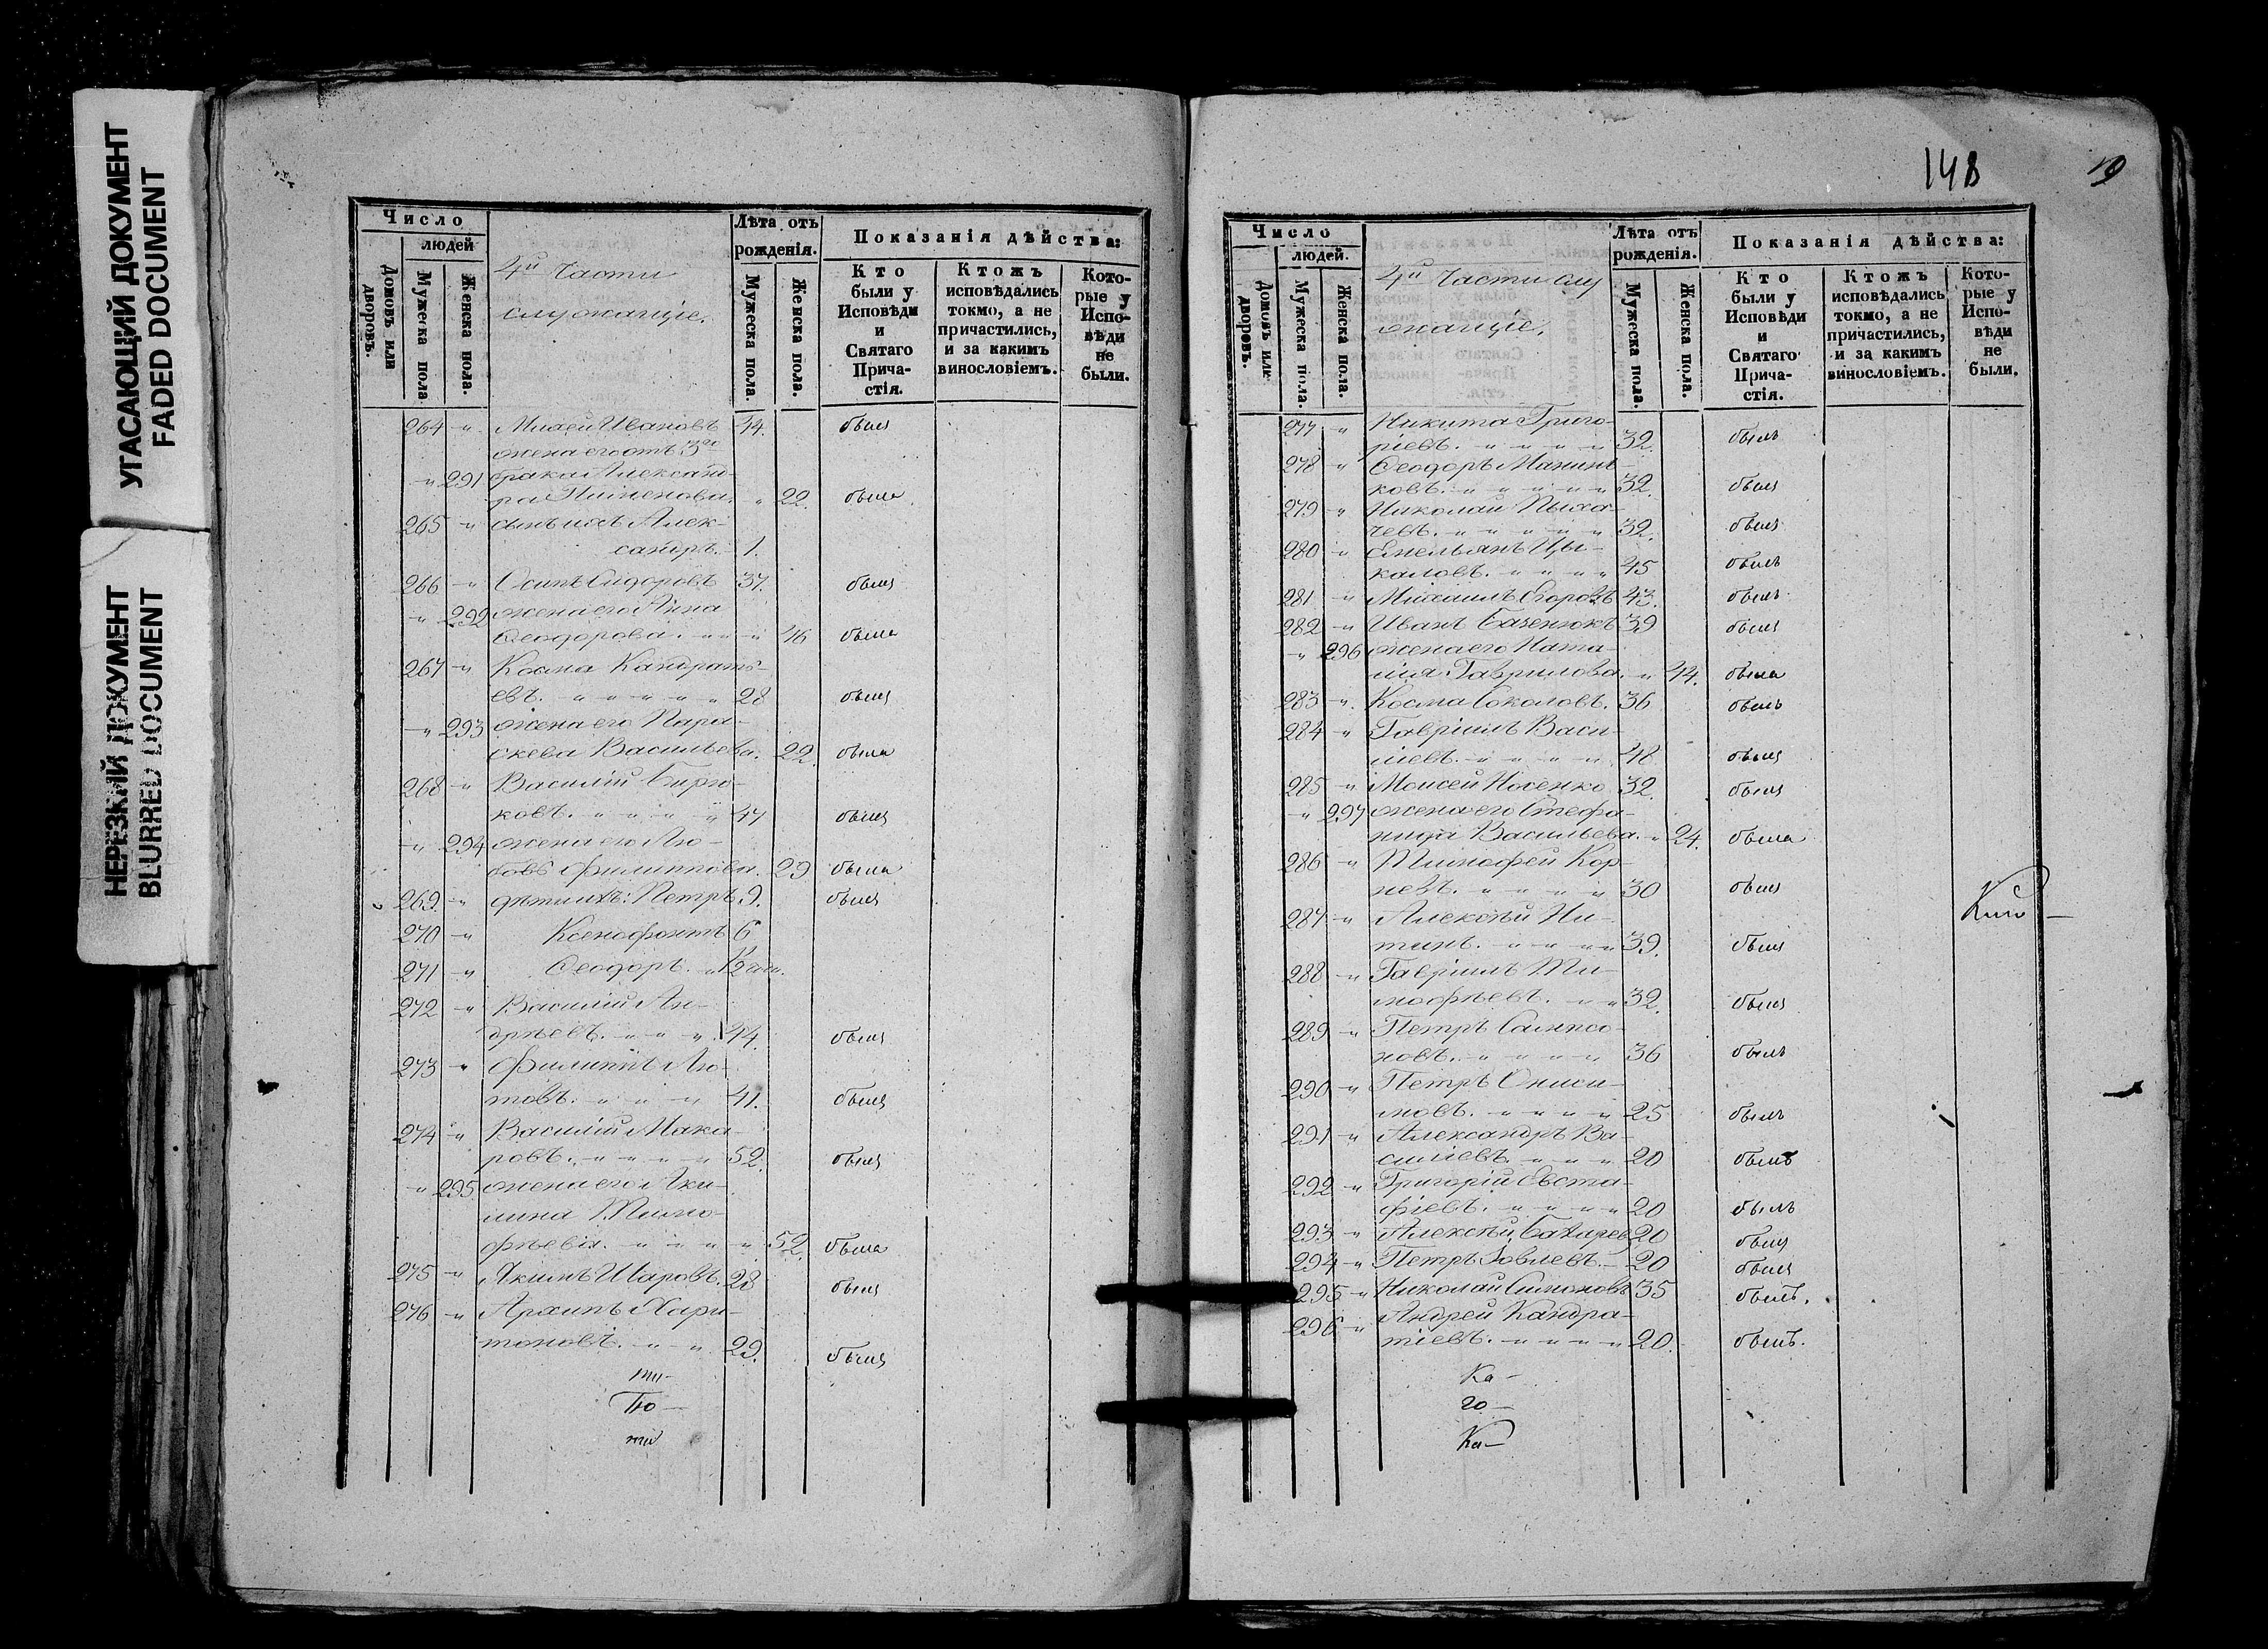 УГАСАЮЩИЙ ДОКУМЕНТ
FADED DOCUMENT
НЕРЕЗКИЙ ДОКУМЕНТ
BLURRED DOCUMENT
Число
людей
Домовъ или дворовъ.
Мужеска пола
Женска пола.
4й части
служащіе.
Лѣта отъ рожденія.
Мужеска пола.
Женска пола.
Показанія дѣйства:
Кто были у Исповѣди и Святаго Прича-стія.
Ктожъ исповѣдались токмо, а не причастились, и за какимъ винословіемъ.
Кото-рые у Испо-вѣди не были.
264 " Ивановъ 44. былъ
жена его отъ 3го
" 291 брака Алексан-
дра Пименова. " 22. была
265 " сынъ ихъ Алек-
сандръ. 1.
266 " Осипъ Сидоровъ 37. былъ
" 292 жена его Анна
Ѳеодорова. " " " 46 была
267 " Косма Кандрать-
евъ. " " " " " 28 былъ
" 293 жена его Пара-
скева Васильева. 22. была
268 " Василій Бирю-
ковъ. " " " " 47 былъ
" 294 жена его Лю-
бовь Филиппова. 29 была
269. " дѣти ихъ: Петръ 9. былъ
270 " Ксенофонтъ 6
271 " Ѳеодоръ. "
272 " Василій Ан-
дрѣевъ. " " " 44. былъ
273 " Филиппъ Лю-
товъ. " " " 41. былъ
274 " Василій Мака-
ровъ. " " " " 52. былъ
" 295 жена его Аки-
лина Тимо-
фѣева. " " " " " 52. была
275 " Акимъ Шаровъ. 28 былъ
276 " Архипъ Хари-
тоновъ. " " 29. былъ
ти-
По-
ти
148
19
Число
людей.
Домовъ или дворовъ.
Мужеска пола.
Женска пола.
4й части слу
жащіе.
Лѣта отъ рожденія.
Мужеска пола.
Женска пола.
Показанія дѣйства:
Кто были у Исповѣди и Святаго Прича-стія.
Ктожъ исповѣдались токмо, а не причастились, и за какимъ винословіемъ.
Кото-рые у Испо-вѣди не были.
277 " Никита Григо-
ріевъ. " " " " 32. былъ
278 " Ѳеодоръ
ковъ. " " " " " 32. былъ
279 " Николай Пыха-
чевъ. " " " " " 32. былъ
280 " Емельянъ Цы-
каловъ. " " " " 45 былъ
281 " Михаилъ Егоровъ 43. былъ
282 " Иванъ 39 былъ
" 296 жена его Ната-
лія Гаврилова. " 44. была
283 " Косма Соколовъ. 36 былъ
284 " Гавріилъ Васи-
ліевъ. " " " " 48 былъ
285 " Моисей Носенко 32. былъ
" 297 жена его Стефа-
нида Васильева. " 24. была
286 " Тимофей Кор-
невъ. " " " " " 30 былъ
287 " Алексѣй Ни-
тинъ. " " " " 39. былъ
288 " Гавріилъ Ти-
мофѣевъ. " " 32. былъ
289 " Петръ Самсо-
новъ. " " " " 36 былъ
290 " Петръ Ониси-
мовъ. " " " " 25 былъ
291 " Александръ Ва-
силіевъ. " " " 20 былъ
292 " Григорій Евста-
фіевъ. " " " " 20 былъ
293 " Алексѣй 20 былъ
294 " Петръ 20 былъ
295 " Николай Симоновъ 35 былъ.
296 " Андрей Кандра-
тіевъ. " " " " 20. былъ.
Ка-
го-
Ка-